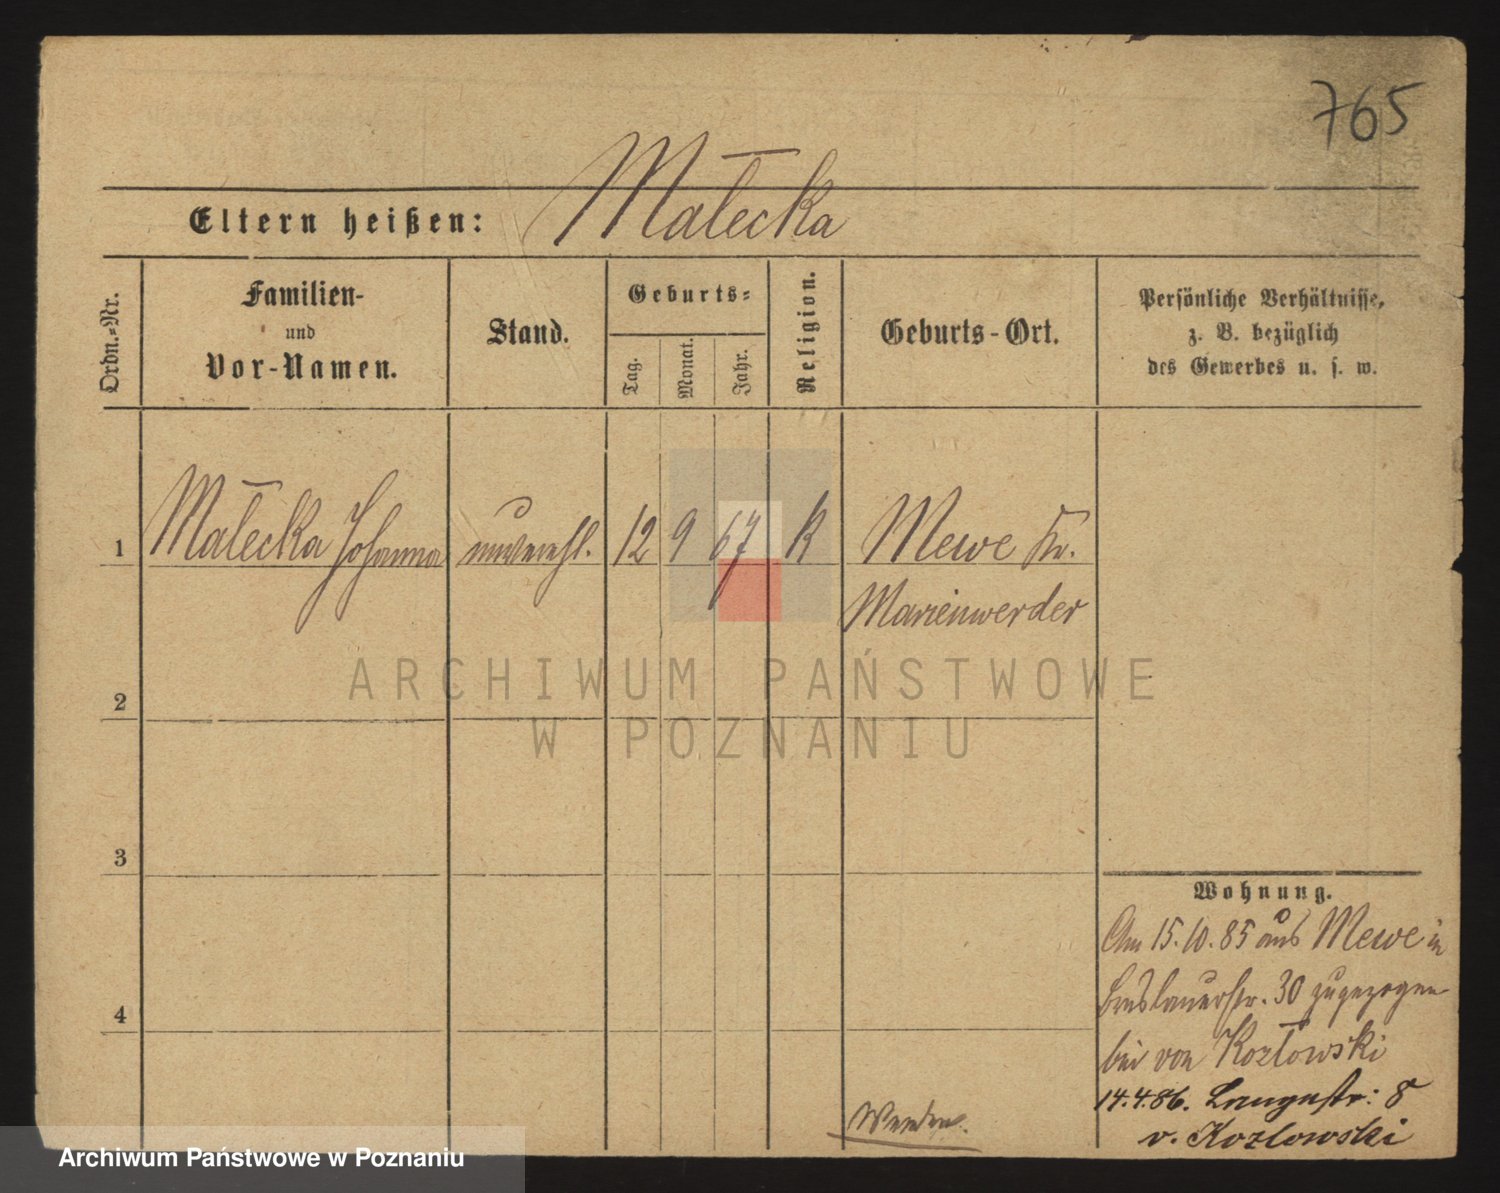 765
Eltern heißen: Małecka
Ordn.-Nr.
Familien-
und
Vor-Namen.
Stand.
Geburts-
Tag.
Monat.
Jahr.
Religion.
Geburts-Ort.
Persönliche Verhältnisse,
z. B. bezüglich
des Gewerbes u. s. w.
1 Małecka Johanna unverehl. 12 9 67 K Mewe Kr.
Marienwerder
ARCHIWUM PAŃSTWOWE
W POZNANIU
2
3
4
Wohnung.
Am 15.10.85 aus Mewe in
Breslauerstr. 30 zugezogen
bei von Kozłowski
14.4.86. Langestr: 8
v. Kozlowski
Archiwum Państwowe w Poznaniu